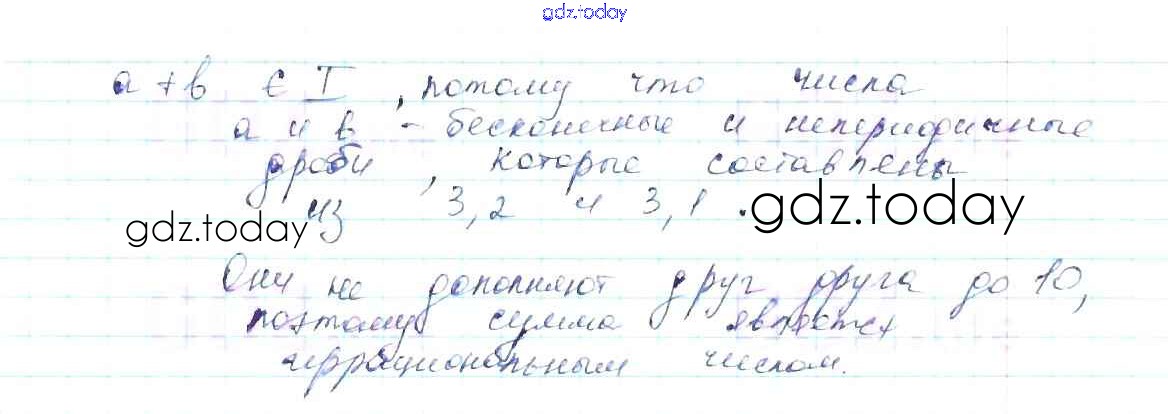 gdz.today
a + b ∈ I, потому что числа
a и b - бесконечные и непериодичные
дроби, которые составлены
из 3,2 и 3,1.
gdz.today
gdz.today
Они не дополняют друг друга до 10,
поэтому сумма является
иррациональным числом.